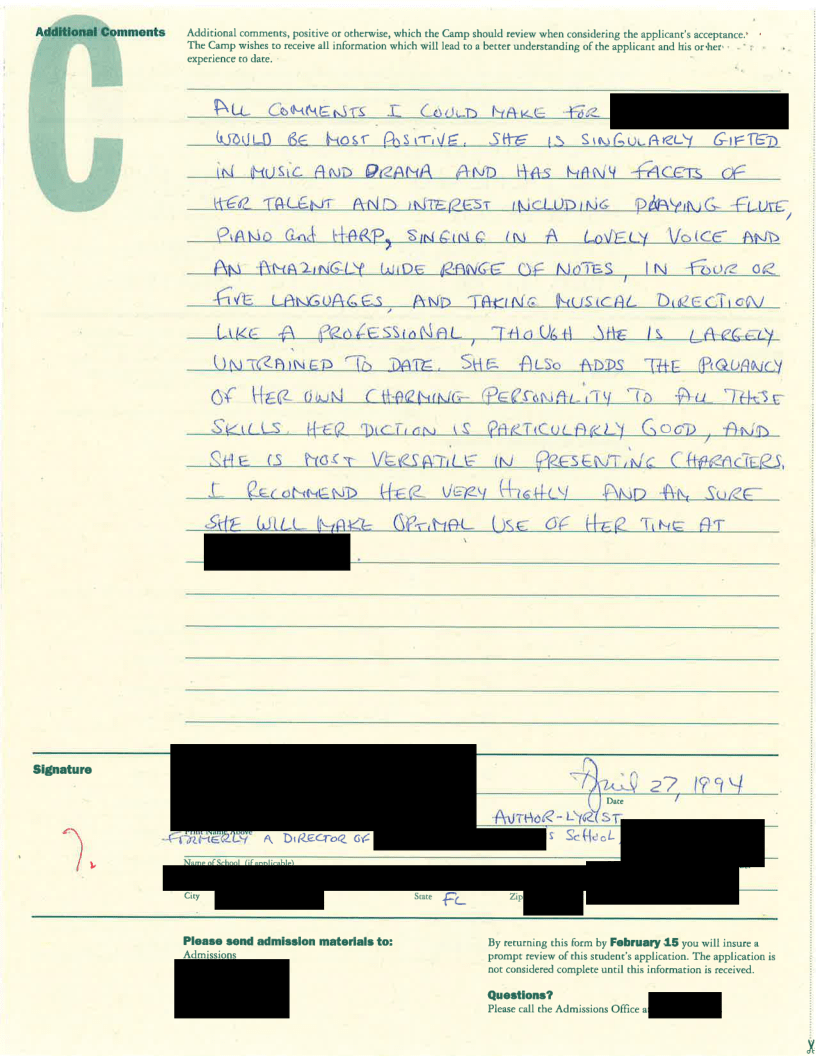 Additional Comments
Additional comments, positive or otherwise, which the Camp should review when considering the applicant's acceptance.
The Camp wishes to receive all information which will lead to a better understanding of the applicant and his or her
experience to date.
C
ALL COMMENTS I COULD MAKE FOR
WOULD BE MOST POSITIVE. SHE IS SINGULARLY GIFTED
IN MUSIC AND DRAMA AND HAS MANY FACETS OF
HER TALENT AND INTEREST INCLUDING PLAYING FLUTE,
PIANO and HARP, SINGING IN A LOVELY VOICE AND
AN AMAZINGLY WIDE RANGE OF NOTES, IN FOUR OR
FIVE LANGUAGES, AND TAKING MUSICAL DIRECTION
LIKE A PROFESSIONAL, THOUGH SHE IS LARGELY
UNTRAINED TO DATE. SHE ALSO ADDS THE PIQUANCY
OF HER OWN CHARMING PERSONALITY TO ALL THESE
SKILLS. HER DICTION IS PARTICULARLY GOOD, AND
SHE IS MOST VERSATILE IN PRESENTING CHARACTERS.
I RECOMMEND HER VERY HIGHLY AND AM SURE
SHE WILL MAKE OPTIMAL USE OF HER TIME AT
.
Signature
April 27, 1994
Date
AUTHOR-LYRIST
Print Name Above
FORMERLY A DIRECTOR OF S SCHOOL,
Name of School (if applicable)
City State FL Zip
Please send admission materials to:
Admissions
By returning this form by February 15 you will insure a
prompt review of this student's application. The application is
not considered complete until this information is received.
Questions?
Please call the Admissions Office a